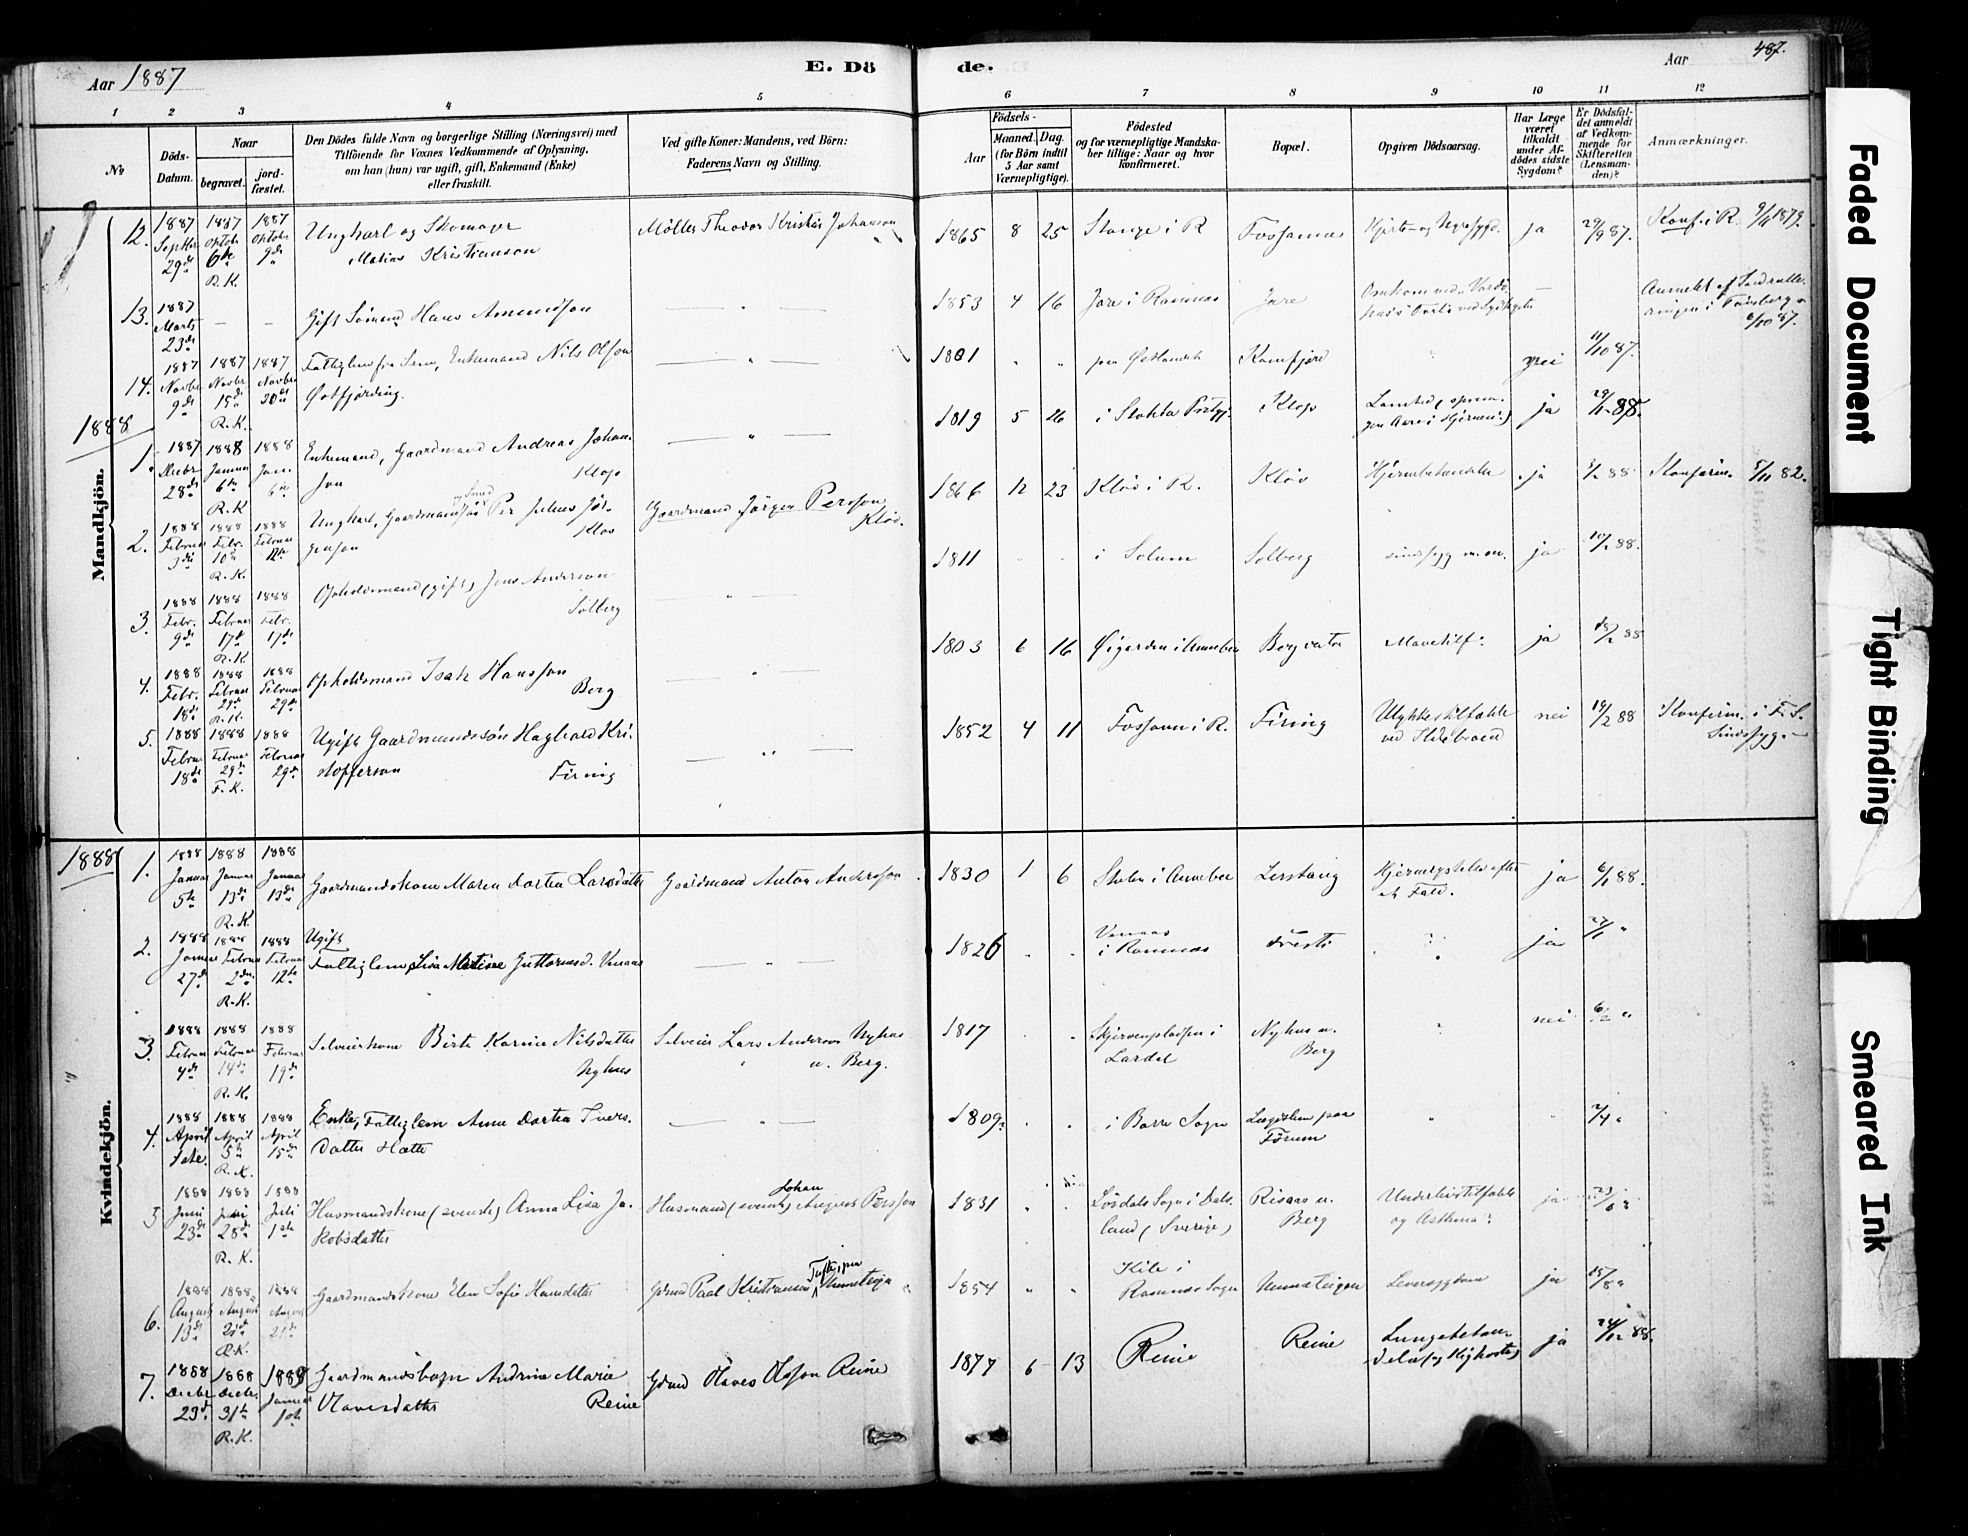 Aar 1887
E. Dö
de.
Aar
487.
1 2 3 4 5 6 7 8 9 10 11 12
No
Döds-
Datum.
Naar
begravet.
jord-
fæstet.
Den Dödes fulde Navn og borgerlige Stilling (Næringsvei) med
Tilföiende for Voxnes Vedkommende af Oplysning,
om han (hun) var ugift, gift, Enkemand (Enke)
eller fraskilt.
Ved gifte Koner: Mandens, ved Börn:
Faderens Navn og Stilling.
Födsels-
Aar
Maaned.
Dag.
(for Börn indtil
5 Aar samt
Værnepligtige).
Födested
og for værnepligtige Mandska-
ber tillige: Naar og hvor
konfirmeret.
Bopæl.
Opgiven Dödsaarsag.
Har Læge
været
tilkaldt
under Af-
dödes sidste
Sygdom?
Er Dödsfal-
det anmeldt
af Vedkom-
mende for
Skifteretten
(Lensman-
den)?
Anmærkninger.
Mandkjön.
12.
1887
Septbr
29de
1887
Oktobr
6te
R. K.
1887
Oktobr
9de
Ungkarl og Skomager
Matias Kristianson
Möller Theodor Kristian Johanson
1865 8 25
Stange i R
Fossanne
ja
29/9 87.
Konf. i R. 9/11 1879.
13.
1887
Marts
23de
– –
Gift Sömand Hans Amundson
— " —
1853 4 16
Jare i Ramnes
Jare
–
Anmeldt af
i Tönsberg
6/10 87.
14.
1887
Novbr
9de
1887
Novbr
15de
R. K.
1887
Novbr
20de
Fattiglem fra Sem, Enkemand Nils Olson
Østfjording.
— " —
1801 " "
Kamfjord
nei
11/10 87.
1888
1.
1887
Decbr
28de
1888
Januar
6te
R. K
1888
Jan.
6te
Enkemand, Gaardmand Andreas Johan-
son Klop
— " —
1819 5 26
i Stokke
Klop
ja
88.
2.
1888
Februar
3die
1888
Febr.
10de
R. K.
1888
Februar
12te
Ungkarl, Gaardmandssön og Smed Per Julius Jör-
genson Klöv
Gaardmand Jörgen Persson
Klöv.
1866 12 23
Klöv i R.
Klöv
Hjernebetændelse
ja
88
Konfirm. 5/11 82.
3.
1888
Febr.
9de
1888
Februar
17de
R. K
1888
Febr.
17de
Opholdsmand (gift) Jens Anderson
Solberg
— " —
1811 . .
i Solum
Solberg
sindssyg m.m.
ja
10/2 88.
4.
1888
Febr.
18de
1888
Februar
29de
R. K.
1888
Februar
29de
Opholdsmand Isak Hansson
Berg
— " —
1803 6 16
Øigarden i Annebu
Berg vestre
Mavetilf:
ja
18/2 88
5.
1888
Februar
18de
1888
Februar
29de
F. K.
1888
Februar
29de
Ugift Gaardmandssön Hagbard Kri-
stofferson Firing
— " —
1852 4 11
Fossann i R.
Firing
Ulykkestilfælde
ved Ildebrand
nei
19/2 88
Konfirm. i F. S.
Sindssyg.
Kvindekjön.
1888
1.
1888
Januar
5te
1888
Januar
13de
R. K.
1888
Januar
13de
Gaardmandskone Maren Dortea Larsdatter
Gaardmand Anton Anderson
1830 1 6
Stulen i Annebu
Lerstang
Hjernerystelse efter
et Fald.
ja
6/1 88.
2.
1888
Januar
27de
1888
Februar
2den
R. K.
1888
Februar
12te
Ugift
Fattiglem, Lisa Matine Guttormsd. Venaas
— " —
1826 . .
Venaas
i Ramnes
Fresti
?
ja
27/1 "
3.
1888
Februar
4de
1888
Februar
14de
R. K.
1888
Februar
19de
Selveierkone Birte Karine Nilsdatter
Nyhus
Selveier Lars Anderson Nyhus
u. Berg.
1817 . "
Skjervenpladsen i
Lardal
Nyhus u.
Berg
?
nei
6/2 "
4.
1888
April
1ste.
1888
April
5te
R. K.
1888
April
15de
Enke, Fattiglem Anne Dortea Ivers-
datter Hotte
— " —
1809. . .
i Borre Sogn
Lægslem paa
Förum
"
"
2/4 "
5
1888
Juni
23de
1888
Juni
28de
R. K.
1888
Juli
1ste
Husmandskone (svensk) Anna Lisa Ja-
kobsdatter
Husmand (svensk) Johan August Persson
1831 " "
Lösdals Sogn i Dals-
land (Sverige)
Risaas u.
Berg
Underlivstilfælde
og Asthma?
ja
23/6 "
6.
1888
August
13de
1888
August
21de
R.K.
1888
August
21de
Gaardmandskone Elen Sofie Hansdatter
Gdmd Paal Kristianson Unneteigen
1854 " "
Kile i
Ramnes Sogn
Unneteigen
Leversygdom
ja
15/8 "
7.
1888
Decbr
23de
1888
Decbr.
31te
R. K.
1889
Januar
1ste
Gaardmandsbarn Andrine Marie
Olavesdatter Reine
Gdmd Olaves Olsson Reine
1877 6 13
Reine
Reine
Lungebetæn-
delse og Kighoste
ja
24/12 88.
Faded Document
Tight Binding
Smeared Ink